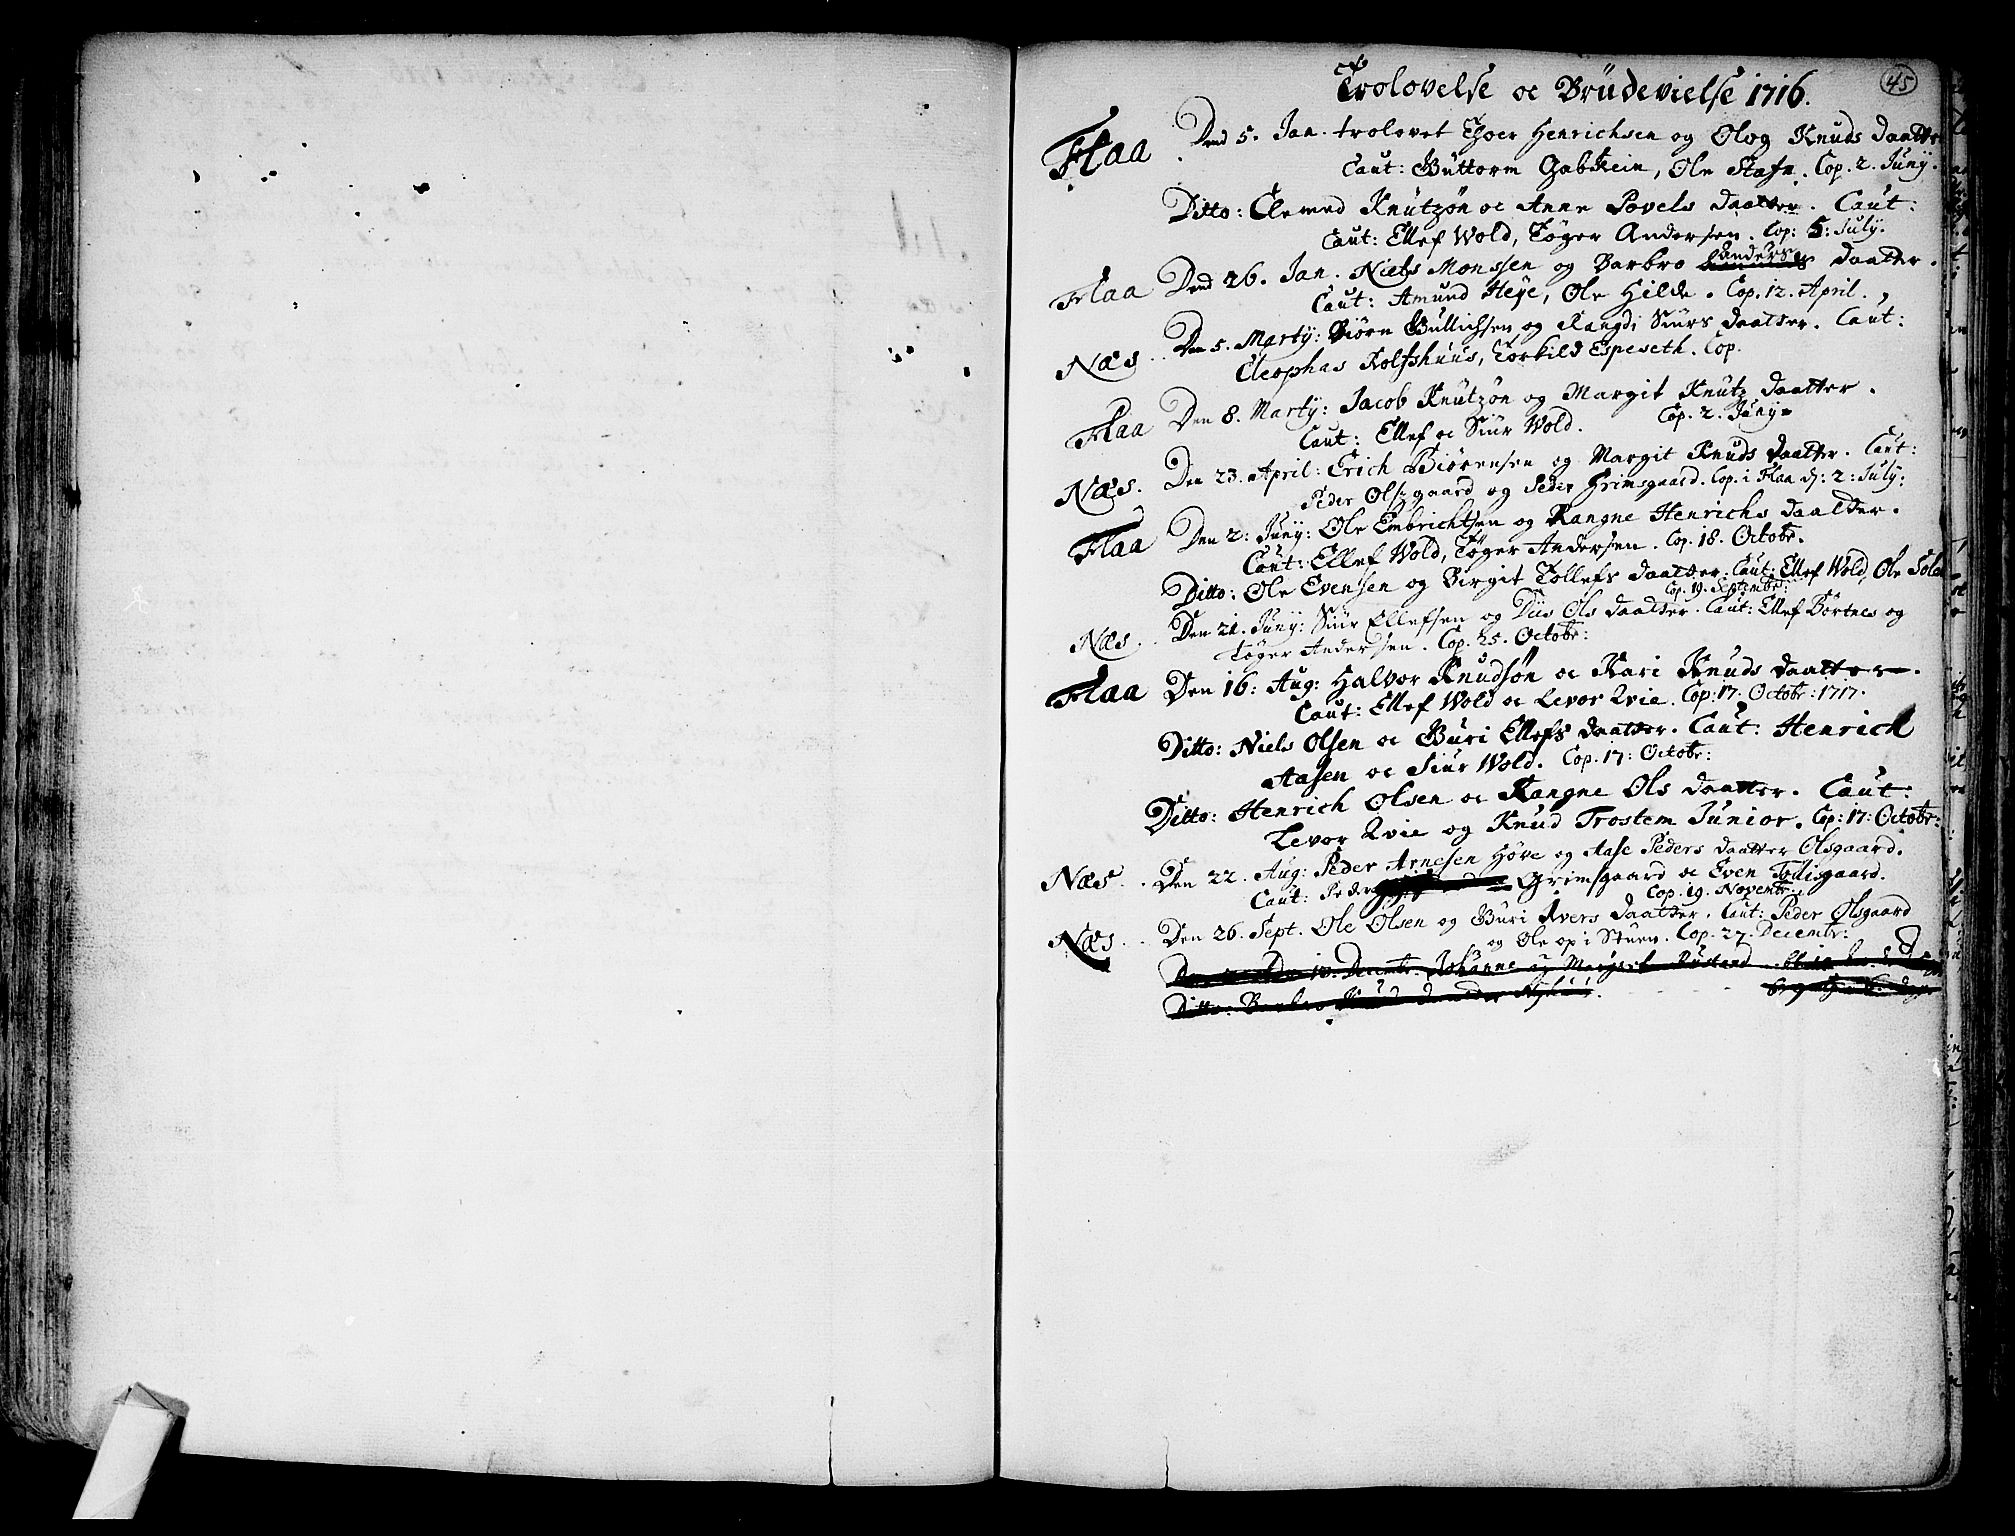 45
Trolovelse oc Brüdevielse 1716.
Flaa Dend 5. Jan. trolovet Thoer Henrichsen og Olog Knuds daatter
Caut: Guttorm Gabstein, Ole Stafn. Cop. 2. Juny.
Ditto: Clemed Knutzøn oc Anne Povels daatter. Caut:
Caut: Ellef Wold, Tøger Andersen. Cop: 5: July.
Flaa Dend 26. Jan. Niels Monssen og Barbro Anders daatter.
Caut: Amund Heye, Ole Hilde. Cop. 12. April.
Næs. Den 5. Marty: Biørn Gullichsen og Rangdi Siurs daatter. Caut:
Cleophas Rolfshuus, Torkild Espeseth. Cop.
Flaa Den 8. Marty: Jacob Knutzøn og Margit Knutz daatter.
Caut: Ellef oc Siur Wold. Cop. 2. Juny
Næs. Den 23. April: Erich Biørensen og Margit Knuds daatter. Caut:
Peder Olsgaard og Peder Grimsgaard. Cop. i Flaa d: 2: July:
Flaa Den 2: Juny: Ole Embrichtsen og Rangne Henrichs daatter.
Caut: Ellef Wold, Tøger Andersen. Cop. 18. Octobr.
Ditto: Ole Evensen og Birgit Tollefs daatter. Caut: Ellef Wold, Ole
Cop. 19. Septembr:
Næs. Den 21. Juny: Siur Ellefsen og Diis Ols daatter. Caut: Ellef Børtnes og
Tøger Andersen. Cop. 25. Octobr:
Flaa Den 16: Aug: Halvor Knudsøn oc Kari Knuds daatter.
Caut: Ellef Wold oc Levor Qvie. Cop: 17. Octobr: 1717.
Ditto: Niels Olsen oc Guri Ellefs daatter. Caut: Henrich
Aasen oc Siur Wold. Cop. 17: Octobr:
Ditto: Henrich Olsen oc Rangne Ols daatter. Caut:
Levor Qvie og Knud Trostem Junior. Cop: 17: Octobr:
Næs. Den 22. Aug: Peder Arnesen Høve og Aase Peders daatter Olsgaard.
Caut: Peder Grimsgaard oc Even Trulsgaard.
Cop. 19. Novembr:
Næs. Den 26. Sept. Ole Olsen og Guri Ivers daatter. Caut: Peder Olsgaard
og Ole op i Stuen. Cop. 27. Decembr:
Decembr. Johanne og Margaret Rustand
Ditto: Barbro Knuds daatter